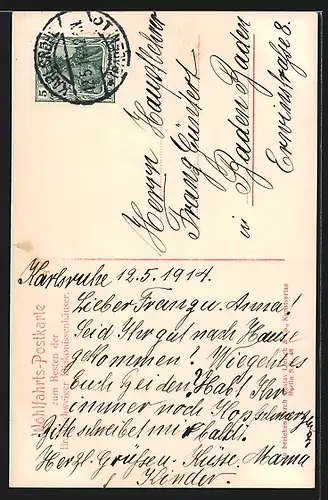 Herrn Hauptlehrer
Franz Günthert
in Baden Baden
Erwinstraße 8.
Karlsruhe 12.5.1914.
Lieber Franz u. Anna!
Seid Ihr gut nach Hause
gekommen? Wie geht es
Euch beiden? Habt Ihr
immer noch Kopfschmerzen?
Bitte schreibet mir bald.
Herzl. Grüßen. Küsse. Mama
u Kinder.
Wohlfahrts-Postkarte
zum Besten der
Braunschweiger Diakonissenhäuser.
5